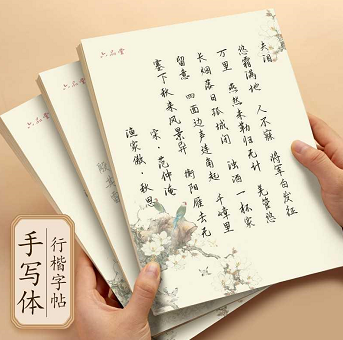 六品堂
六品堂
六品堂
渔家傲·秋思
宋·范仲淹
塞下秋来风景异 衡阳雁去无
留意 四面边声连角起 千嶂里
长烟落日孤城闭 浊酒一杯家
万里 燕然未勒归无计 羌管悠
悠霜满地 人不寐 将军白发征
夫泪
手写体
行楷字帖